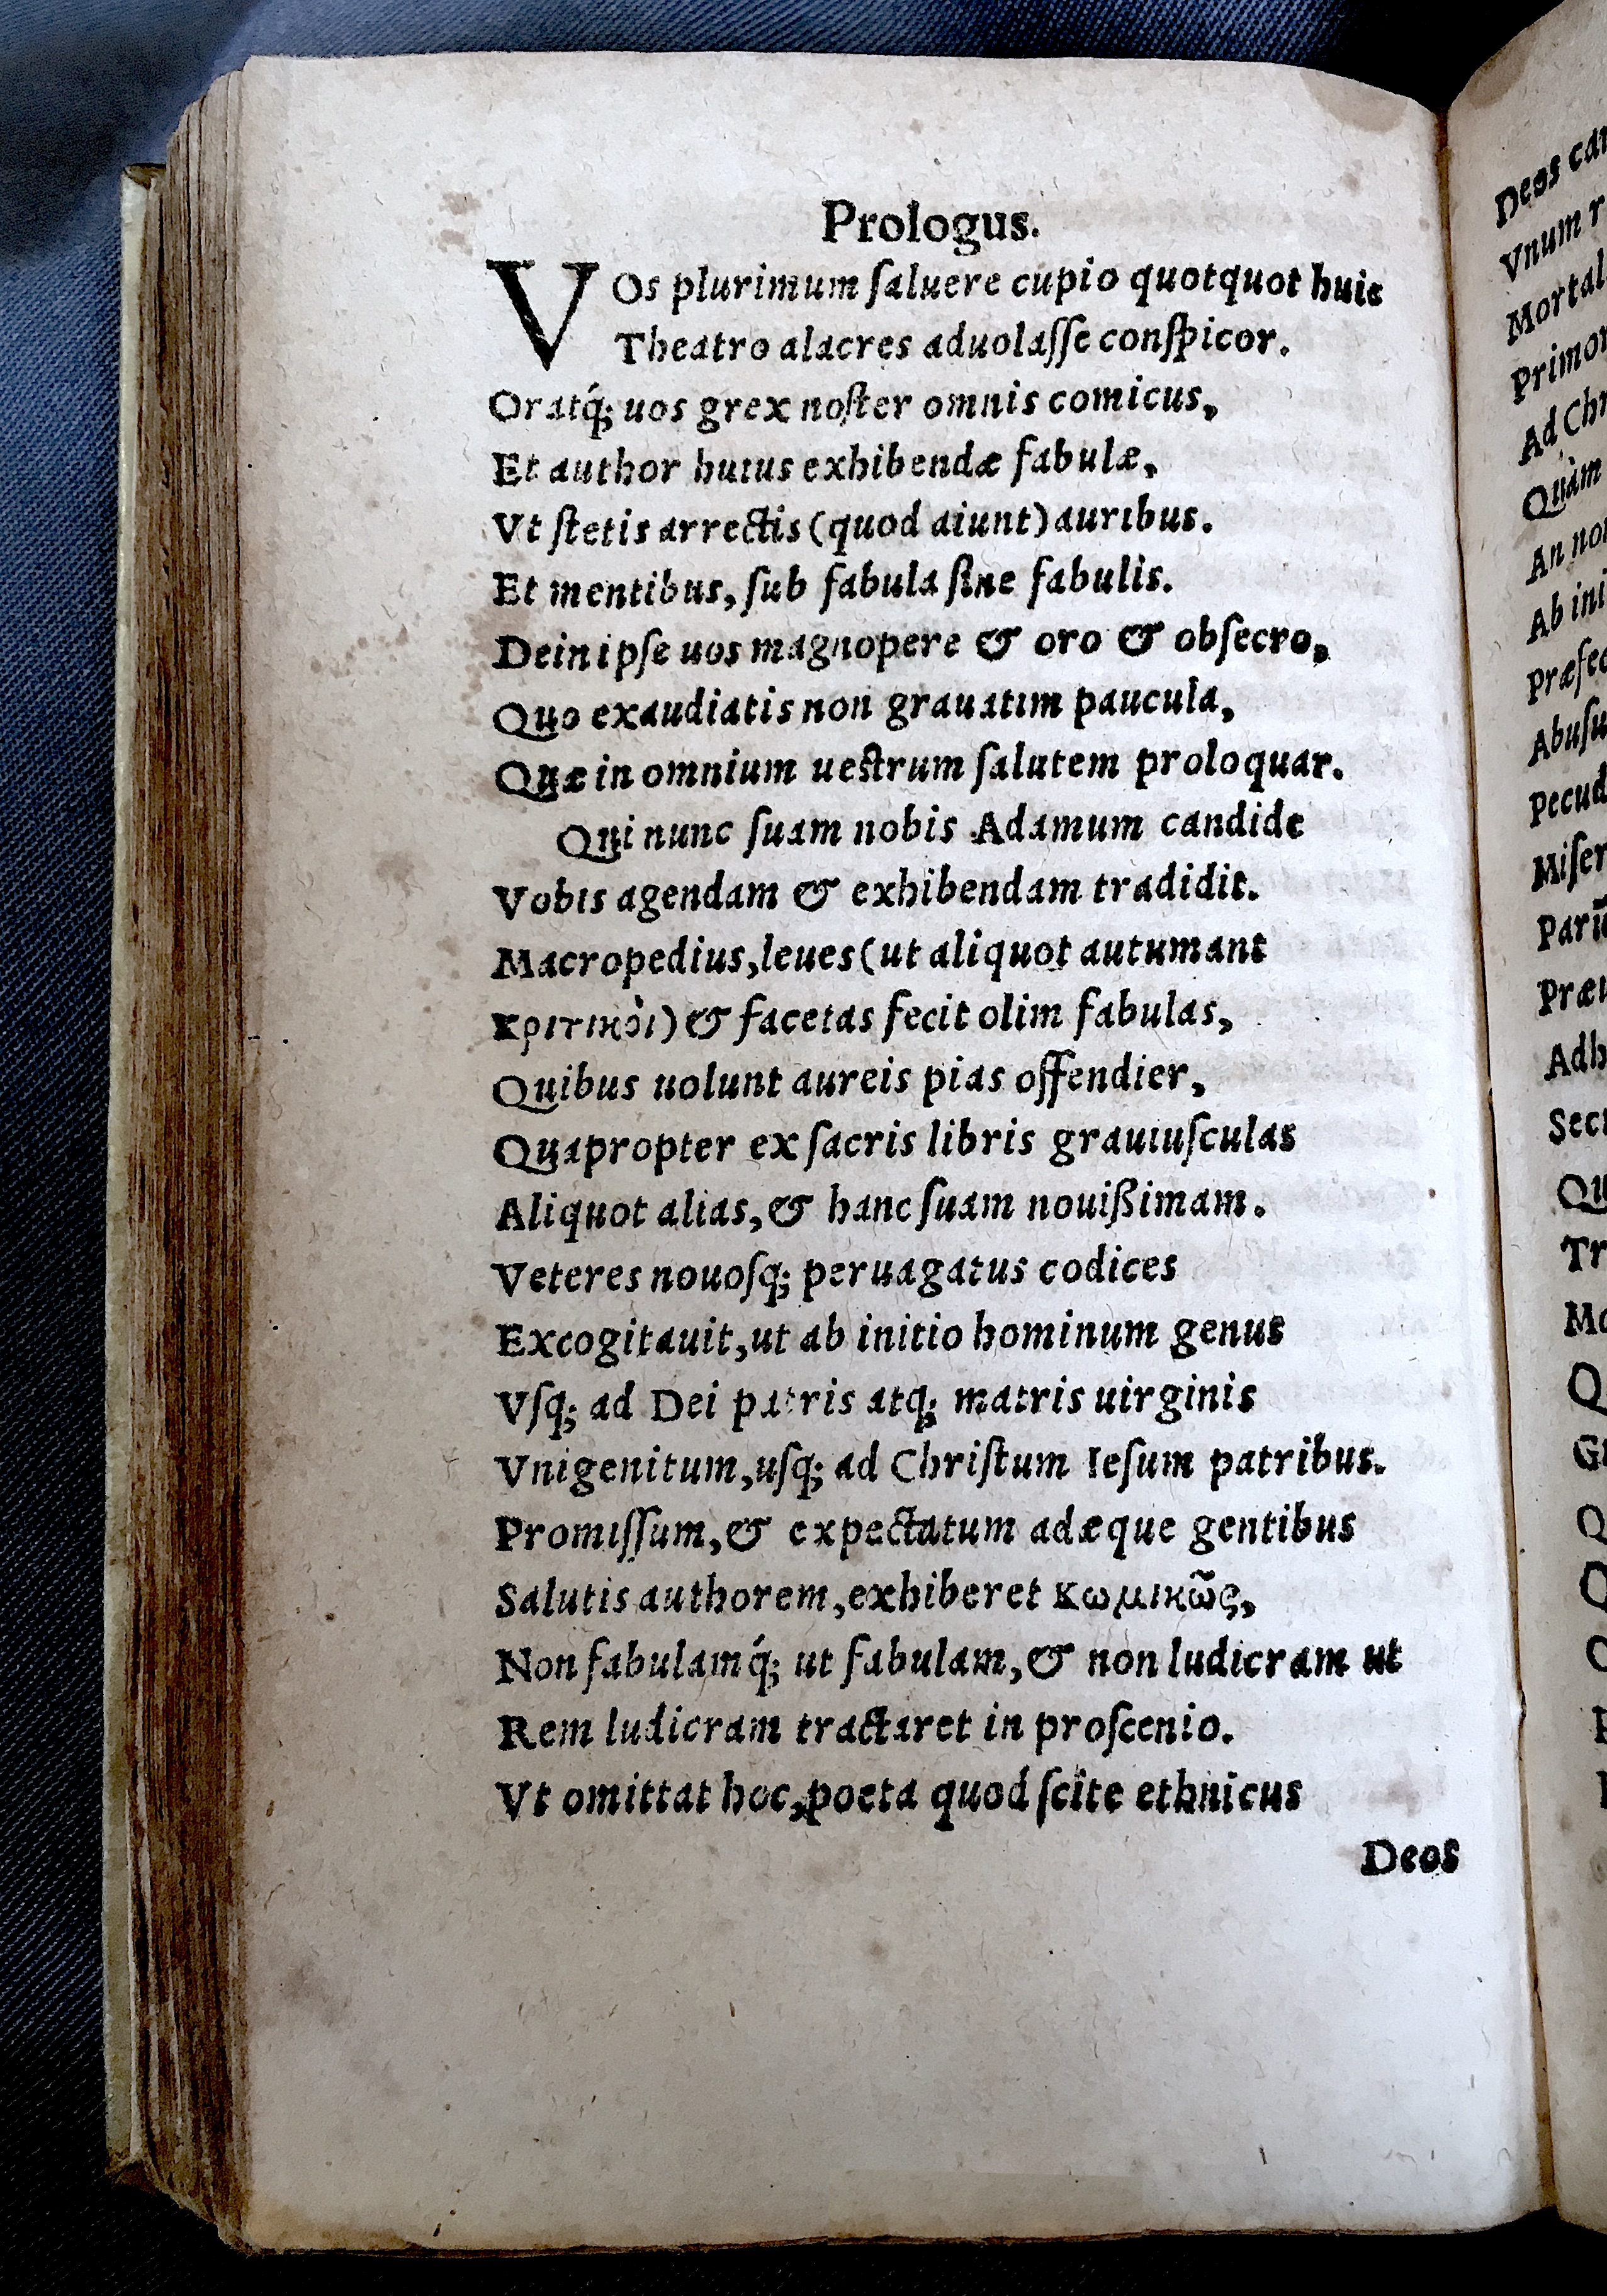 Prologus.
VOs plurimum ſaluere cupio quotquot huic
Theatro alacres aduolaſſe conſpicor.
Oratq́; uos grex noſter omnis comicus,
Et author huius exhibendæ fabulæ,
Vt ſtetis arrectis (quod aiunt) auribus.
Et mentibus, ſub fabula ſine fabulis.
Dein ipſe uos magnopere & oro & obſecro,
Quo exaudiatis non grauatim paucula,
Quæ in omnium ueſtrum ſalutem proloquar.
Qui nunc ſuam nobis Adamum candide
Vobis agendam & exhibendam tradidit.
Macropedius, leues (ut aliquot autumant
κριτικὸι) & facetas fecit olim fabulas,
Quibus uolunt aureis pias offendier,
Quapropter ex ſacris libris grauiuſculas
Aliquot alias, & hanc ſuam nouißimam.
Veteres nouoſq; peruagatus codices
Excogitauit, ut ab initio hominum genus
Vſq; ad Dei patris atq; matris uirginis
Vnigenitum, uſq; ad Chriſtum Ieſum patribus.
Promiſſum, & expectatum adæque gentibus
Salutis authorem, exhiberet κωμικῶς,
Non fabulamq́; ut fabulam, & non ludicram ut
Rem ludicram tractaret in proſcenio.
Vt omittat hoc, poeta quod ſcite ethnicus
Deos
Vnum
Mortal
Primor
Ad Chr
Quàm
An non
Ab ini
Præfec
Abuſu
Pecud
Miſer
Præu
Adh